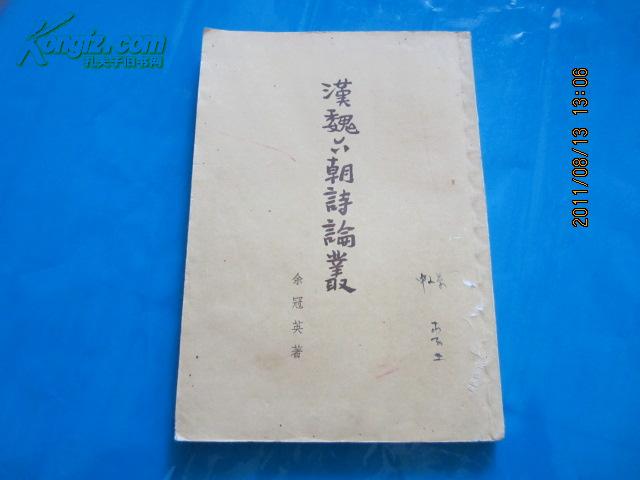 Kongfz.com
孔夫子旧书网
2011/08/13 13:06
漢魏六朝詩論叢
余冠英著